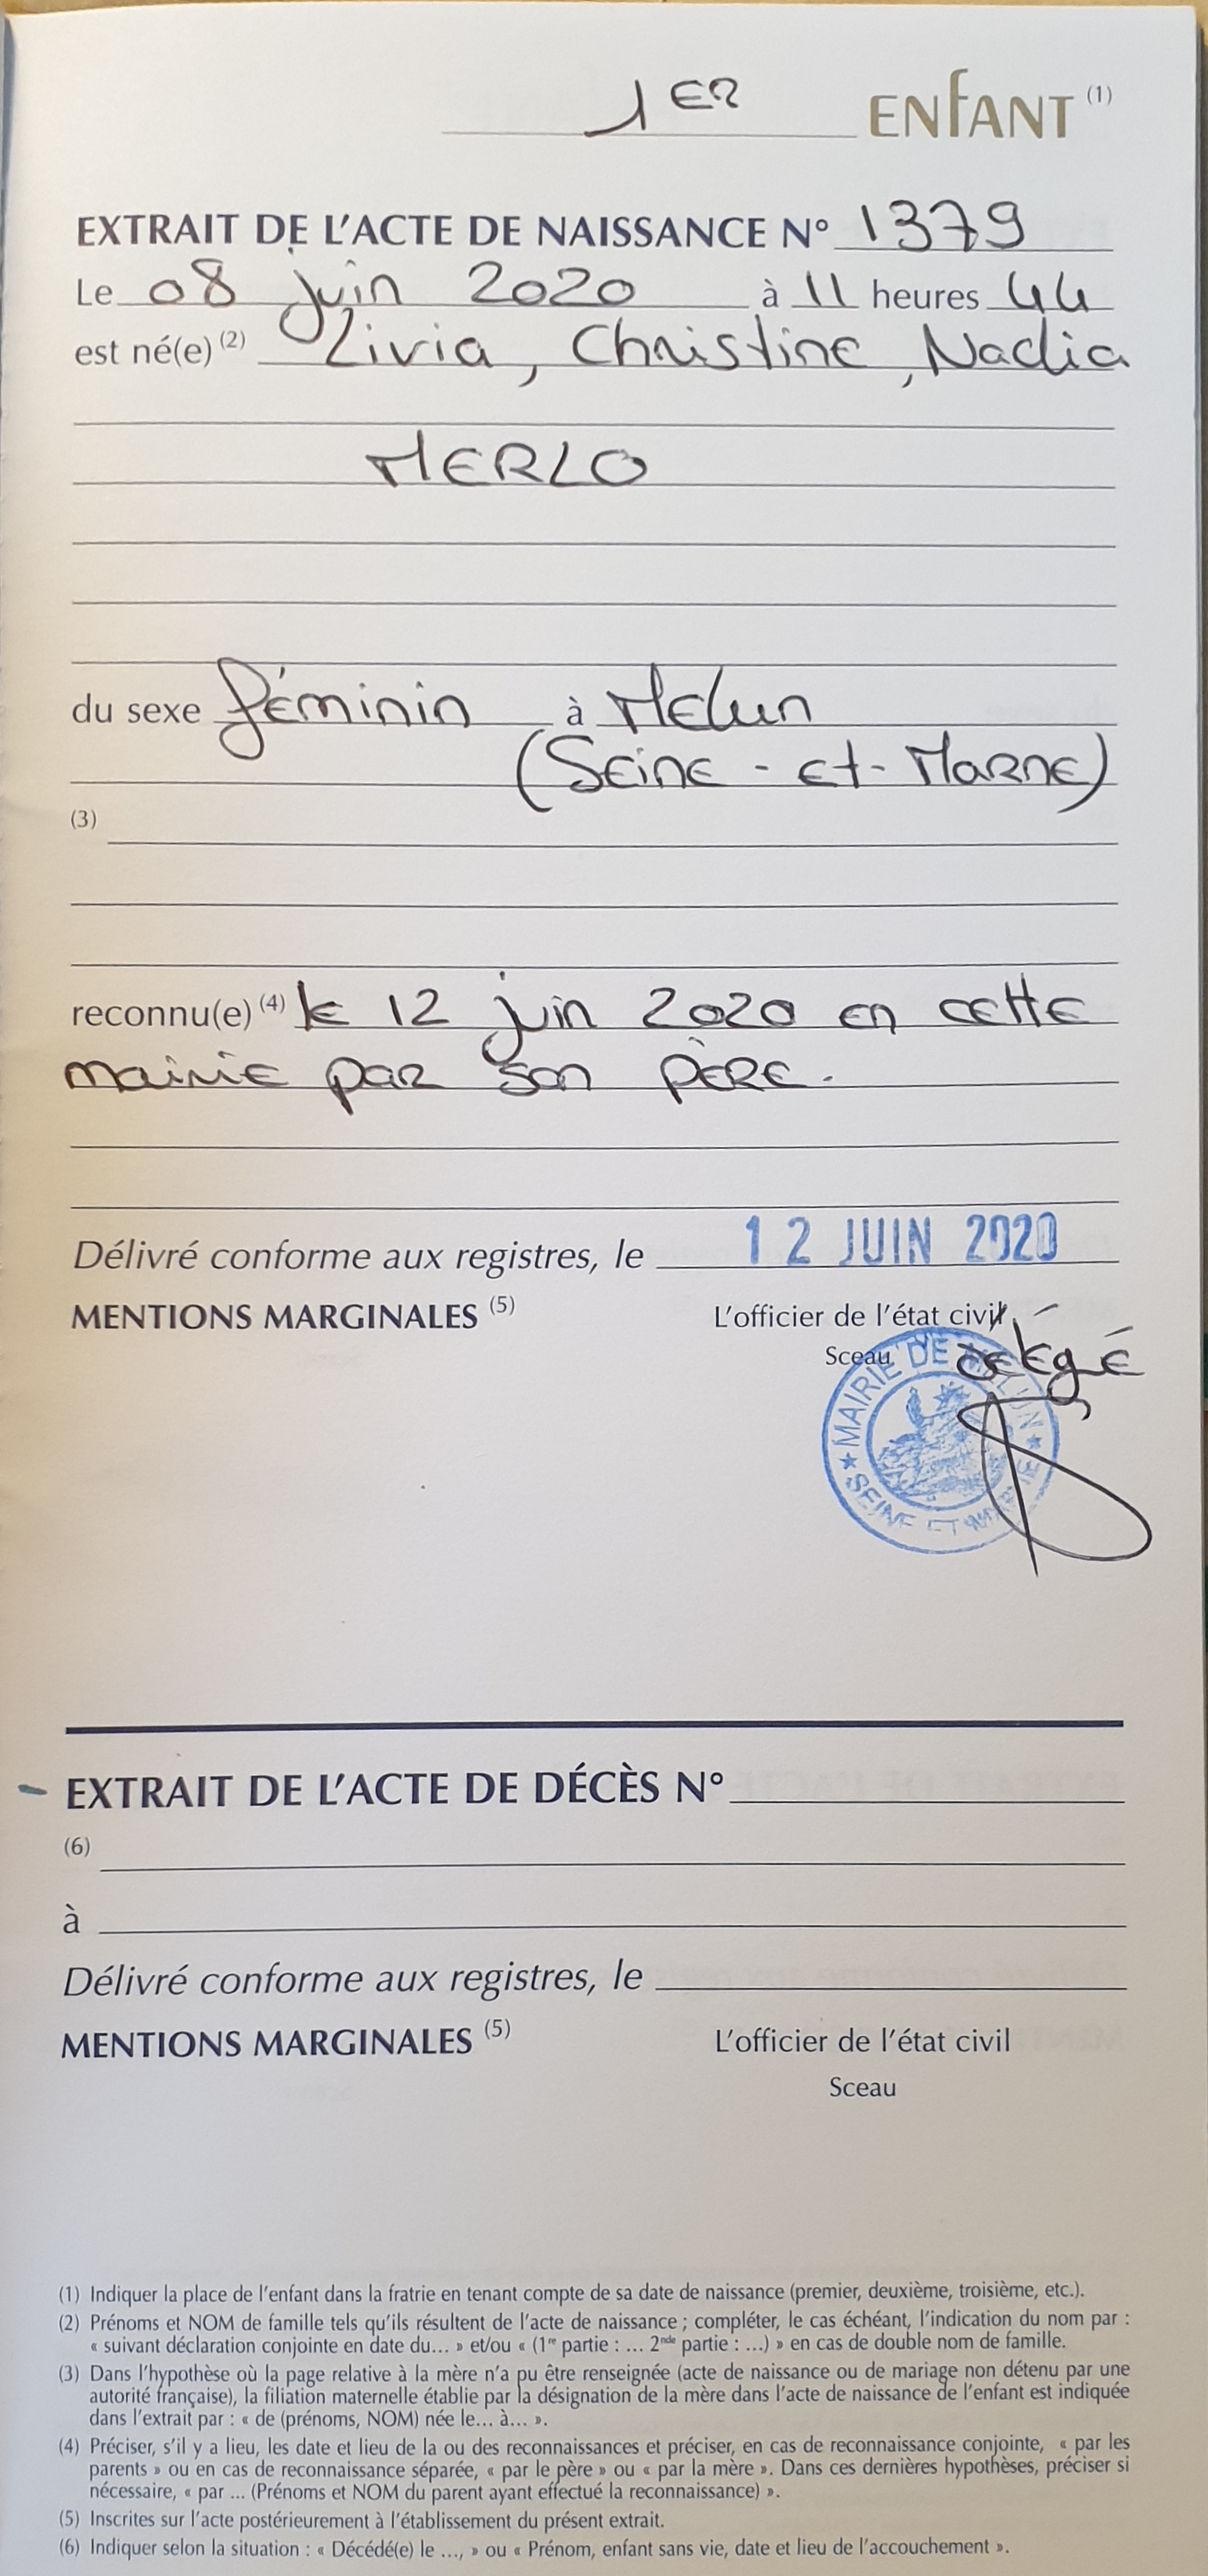 1ER ENFANT (1)
EXTRAIT DE L'ACTE DE NAISSANCE N° 1379
Le 08 juin 2020 à 11 heures 44
est né(e) (2) Livia, Christine, Nadia
MERLO
du sexe féminin à Melun
(Seine-et-Marne)
(3)
reconnu(e) (4) le 12 juin 2020 en cette
mairie par son père.
Délivré conforme aux registres, le 12 JUIN 2020
MENTIONS MARGINALES (5) L'officier de l'état civil
Sceau délégué
MAIRIE DE MELUN
SEINE ET MARNE
EXTRAIT DE L'ACTE DE DÉCÈS N°
(6)
à
Délivré conforme aux registres, le
MENTIONS MARGINALES (5) L'officier de l'état civil
Sceau
(1) Indiquer la place de l'enfant dans la fratrie en tenant compte de sa date de naissance (premier, deuxième, troisième, etc.).
(2) Prénoms et NOM de famille tels qu'ils résultent de l'acte de naissance ; compléter, le cas échéant, l'indication du nom par :
« suivant déclaration conjointe en date du... » et/ou « (1re partie : ... 2nde partie : ...) » en cas de double nom de famille.
(3) Dans l'hypothèse où la page relative à la mère n'a pu être renseignée (acte de naissance ou de mariage non détenu par une
autorité française), la filiation maternelle établie par la désignation de la mère dans l'acte de naissance de l'enfant est indiquée
dans l'extrait par : « de (prénoms, NOM) née le... à... ».
(4) Préciser, s'il y a lieu, les date et lieu de la ou des reconnaissances et préciser, en cas de reconnaissance conjointe, « par les
parents » ou en cas de reconnaissance séparée, « par le père » ou « par la mère ». Dans ces dernières hypothèses, préciser si
nécessaire, « par ... (Prénoms et NOM du parent ayant effectué la reconnaissance) ».
(5) Inscrites sur l'acte postérieurement à l'établissement du présent extrait.
(6) Indiquer selon la situation : « Décédé(e) le ..., » ou « Prénom, enfant sans vie, date et lieu de l'accouchement ».